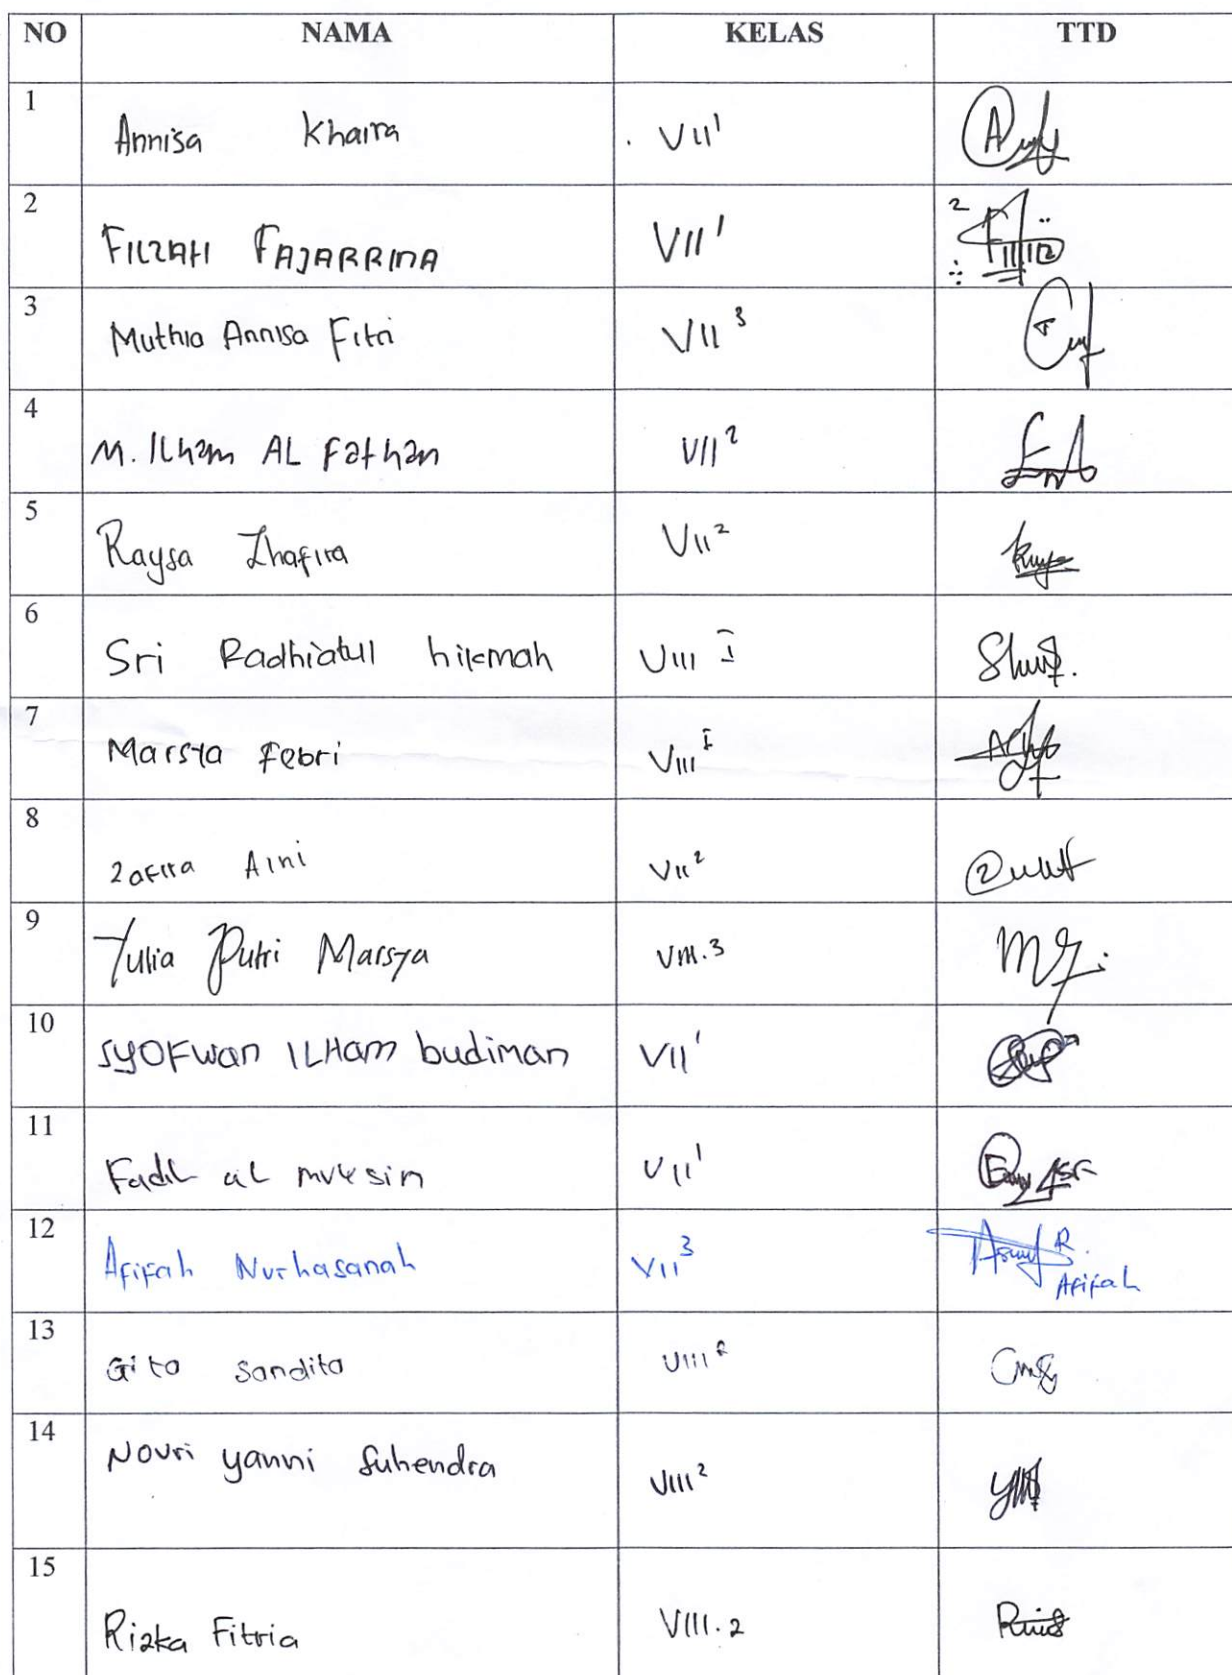 NO NAMA KELAS TTD
1 Annisa Khaira VII¹
2 FILZAH FAJARRINA VII¹
3 Muthia Annisa Fitri VII³
4 M. ILham AL Fathan VII²
5 Raysa Zhafira VII²
6 Sri Radhiatull hikmah VIII I
7 Marsya Febri VIII I
8 Zafira Aini VII²
9 Yulia Putri Marsya VIII.3
10 SYOFwan ILHam budiman VII¹
11 Fadil al muksin VII¹
12 Afifah Nurhasanah VII³ Afifah
13 Gito sandito VIII²
14 Novri yanni Suhendra VIII²
15 Rizka Fitria VIII.2